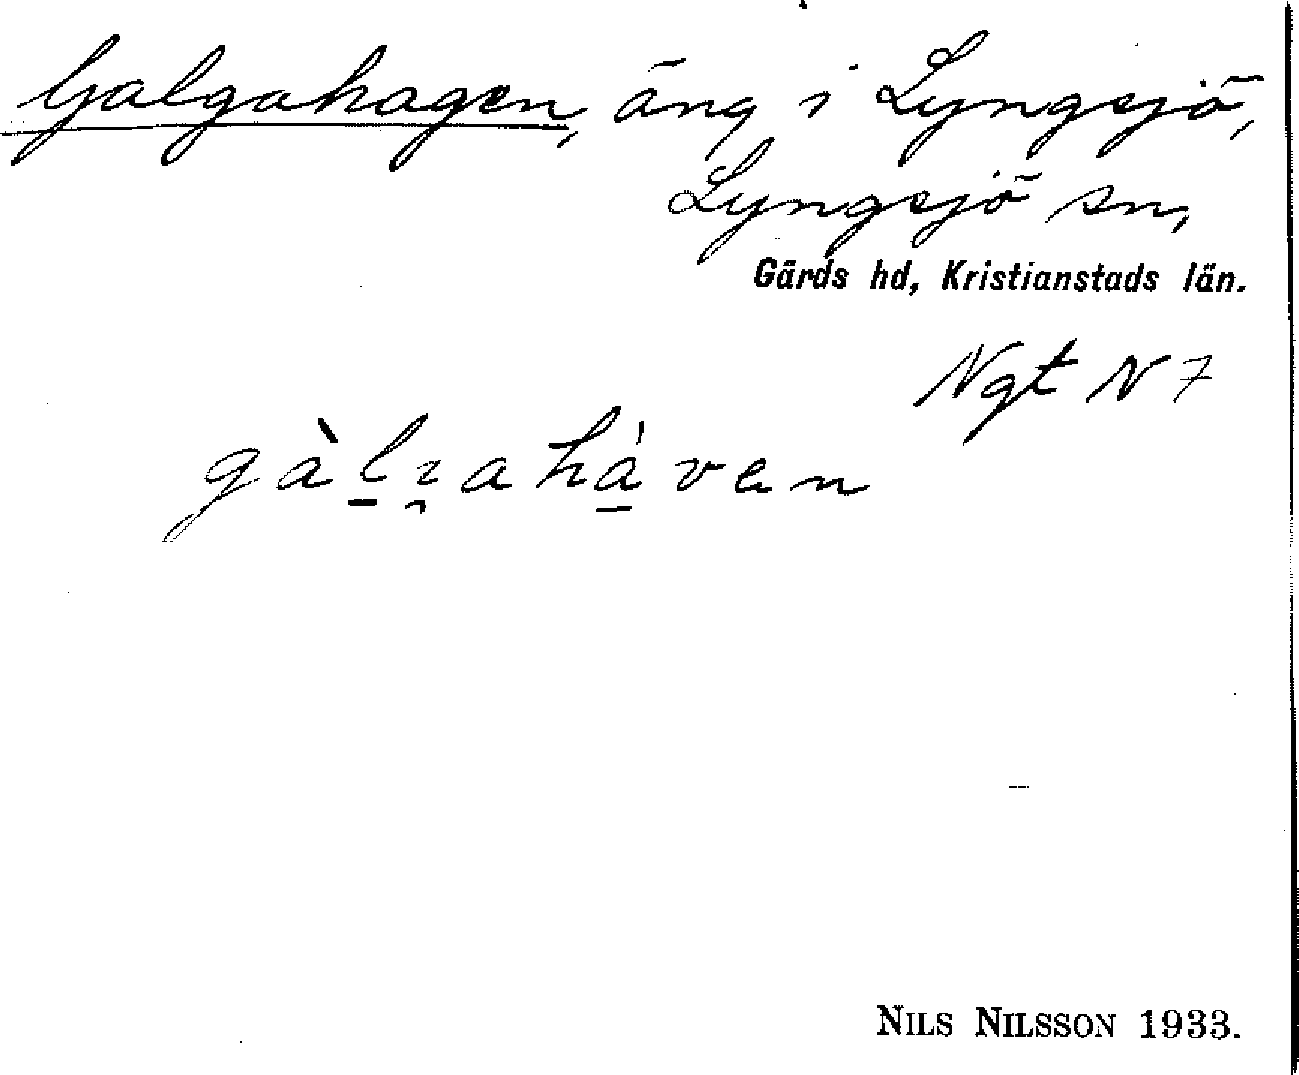 Galgahagen, äng i Lyngsjö,
Lyngsjö sn,
Gärds hd, Kristianstads län.
Ngt N 7
gàl̠ı̯ahá̠ven
NILS NILSSON 1933.